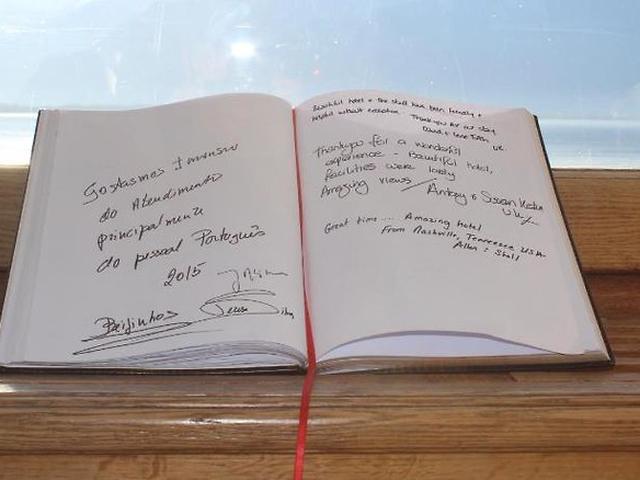 Gostasmos Imenso
do Atendimento
principalmente
do pessoal Português
2015
Beijinhos
Teresa Silva
Beautiful hotel & the staff have been friendly &
helpful without exception. Thank you for our stay
David & Lene UK
Thankyou for a wonderful
experience - Beautiful hotel,
facilities were lovely
Amazing views
Antony & Susan
Great time.... Amazing hotel
From Nashville, Tennessee USA
Allan &